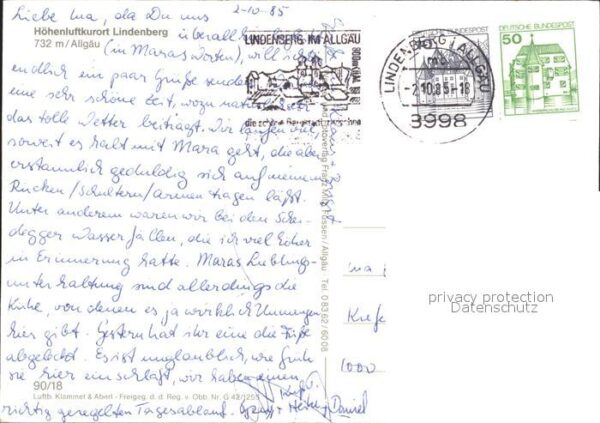 2-10-85
Liebe Ina, da Du uns
überall
Höhenluftkurort Lindenberg
732 m / Allgäu
(in Maras Worten), will ich
endlich ein paar Grüße senden
eine sehr schöne Zeit, wozu
das tolle Wetter beiträgt. Wir laufen viel
soweit es halt mit Mara geht, die aber
erstaunlich geduldig sich auf meinem
Rücken/Schultern/Armen tragen läßt.
Unter anderem waren wir bei den Schei-
degger Wasserfällen, die ich viel höher
in Erinnerung hatte. Maras Lieblings-
unterhaltung sind allerdings die
Kühe, von denen es ja wirklich Unmengen
hier gibt. Gestern hat ihr eine die Füße
abgeleckt. Es ist unglaublich, wie früh
sie hier einschläft, wir haben einen
90/18
Luftb. Klammet & Aberl - Freigeg. d. d. Reg. v. Obb. Nr. G 42/1255
richtig geregelten Tagesablauf.
Daniel
LINDENBERG IM ALLGÄU
LINDENBERG / ALLGÄU
-2.10.85-18
3998
DEUTSCHE BUNDESPOST
50
Füssen/Allgäu Tel. 08362/6008
Ina
1000
privacy protection
Datenschutz